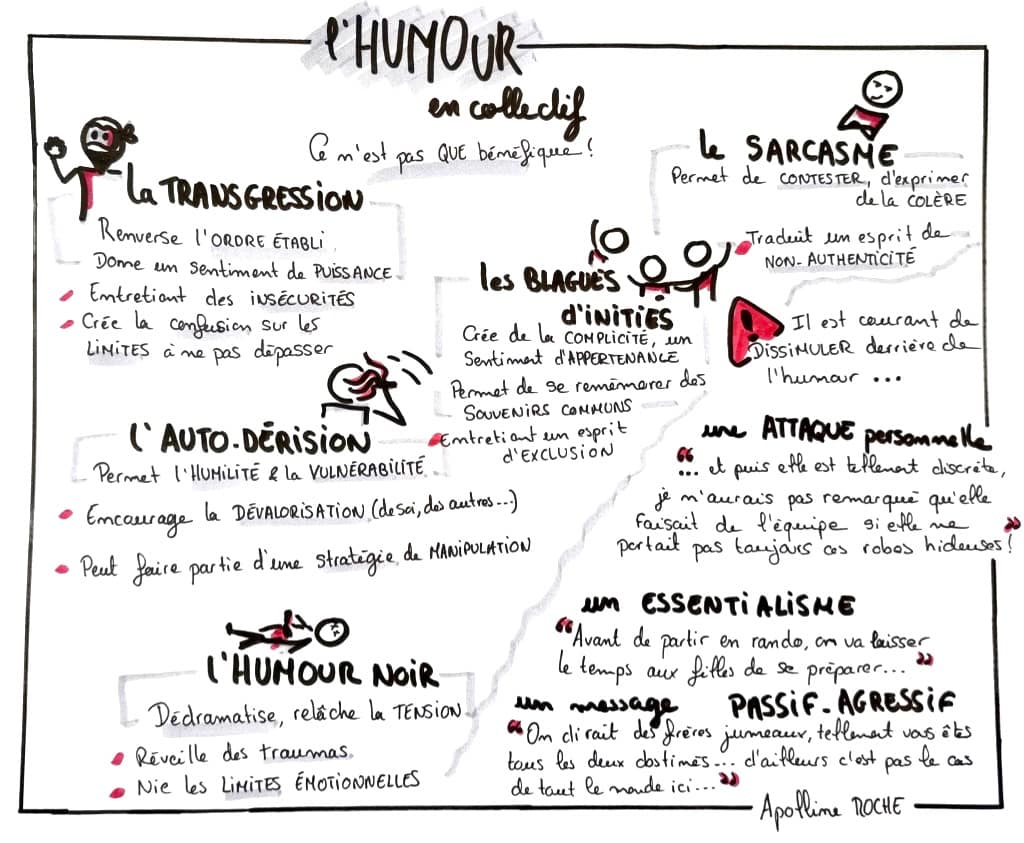 l'HUMOUR
en collectif
Ce n'est pas QUE bénéfique !
la TRANSGRESSION
Renverse l'ORDRE ÉTABLI
Donne un sentiment de PUISSANCE
Entretient des INSÉCURITÉS
Crée la confusion sur les
LIMITES à ne pas dépasser
les BLAGUES
d'INITIÉS
Crée de la COMPLICITÉ, un
Sentiment d'APPERTENANCE
Permet de se remémorer des
SOUVENIRS COMMUNS
Entretient un esprit
d'EXCLUSION
le SARCASME
Permet de CONTESTER, d'exprimer
de la COLÈRE
Traduit un esprit de
NON-AUTHENTICITÉ
l'AUTO-DÉRISION
Permet l'HUMILITÉ & la VULNÉRABILITÉ
Encourage la DÉVALORISATION (de soi, des autres...)
Peut faire partie d'une stratégie de MANIPULATION
l'HUMOUR NOIR
Dédramatise, relâche la TENSION
Réveille des traumas.
Nie les LIMITES ÉMOTIONNELLES
! Il est courant de
DISSIMULER derrière de
l'humour ...
une ATTAQUE personnelle
“... et puis elle est tellement discrète,
je m'aurais pas remarqué qu'elle
faisait de l'équipe si elle ne
portait pas toujours ces robes hideuses! ”
un ESSENTIALISME
“Avant de partir en rando, on va laisser
le temps aux filles de se préparer... ”
un message PASSIF-AGRESSIF
“On dirait des frères jumeaux, tellement vous êtes
tous les deux obstinés... d'ailleurs c'est pas le cas
de tout le monde ici... ”
Apolline ROCHE